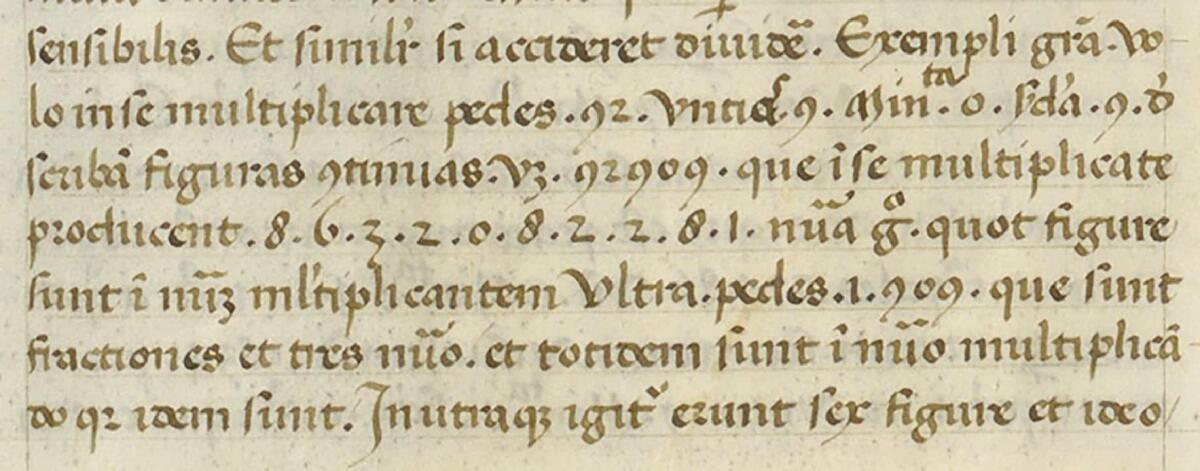 sensibilis. Et similr̛ si accideret diuidē. Exempli grā. Vo
lo in se multiplicare pedes .92. Vntias .9. Minᵗᵃ. 0. scd'a .9. d'
scribā figuras 9tinuas. vȝ. 92909. que ī se multiplicate
producent .8.6.3.2.0.8.2.2.8.1. nūa g°. quot figure
sunt ī nūȝ ml'tiplicantem Vltra. pedes .1. 909. que sunt
fractiones et tres nūo. et totidem sunt ī nūo multiplicā
do qr idem sunt. In utraqȝ igit᷑ erunt sex figure et ideo